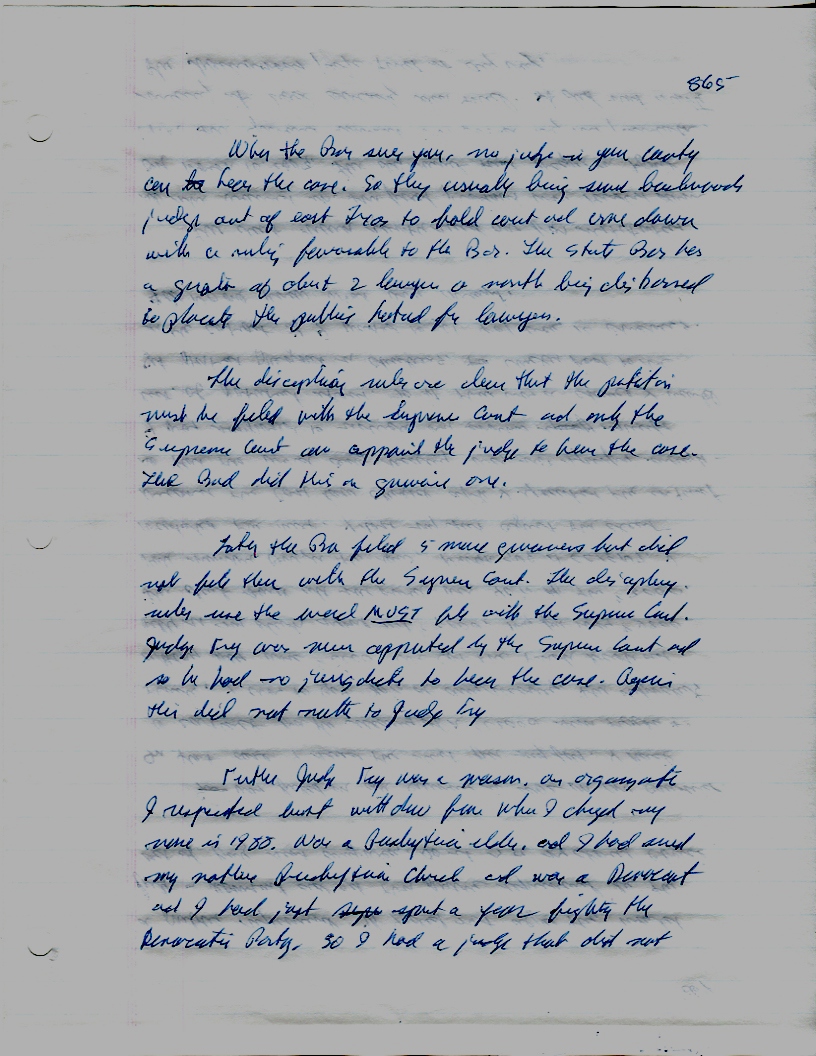 865
When the Bar sues you, no judge in your county
can hear the case. So they usually bring some backwoods
judge out of east Texas to hold court and come down
with a ruling favorable to the Bar. The State Bar has
a quota of about 2 lawyers a month being disbarred
to placate the public hatred for lawyers.
The disciplinary rules are clear that the petition
must be filed with the Supreme Court and only the
Supreme Court can appoint the judge to hear the case.
The Bad did this on grievance one.
Later the Bar filed 5 more grievances but did
not file them with the Supreme Court. The disciplinary
rules use the word MUST file with the Supreme Court.
Judge Fry was never appointed by the Supreme Court and
so he had no jurisdiction to hear the case. Again
this did not matter to Judge Fry
Further Judge Fry was a mason, an organization
I respected but withdrew from when I changed my
name in 1988. Was a Presbyterian elder, and I had sued
my mother Presbyterian Church and was a Democrat
and I had just spent a year fighting the
Democratic Party. So I had a judge that did not